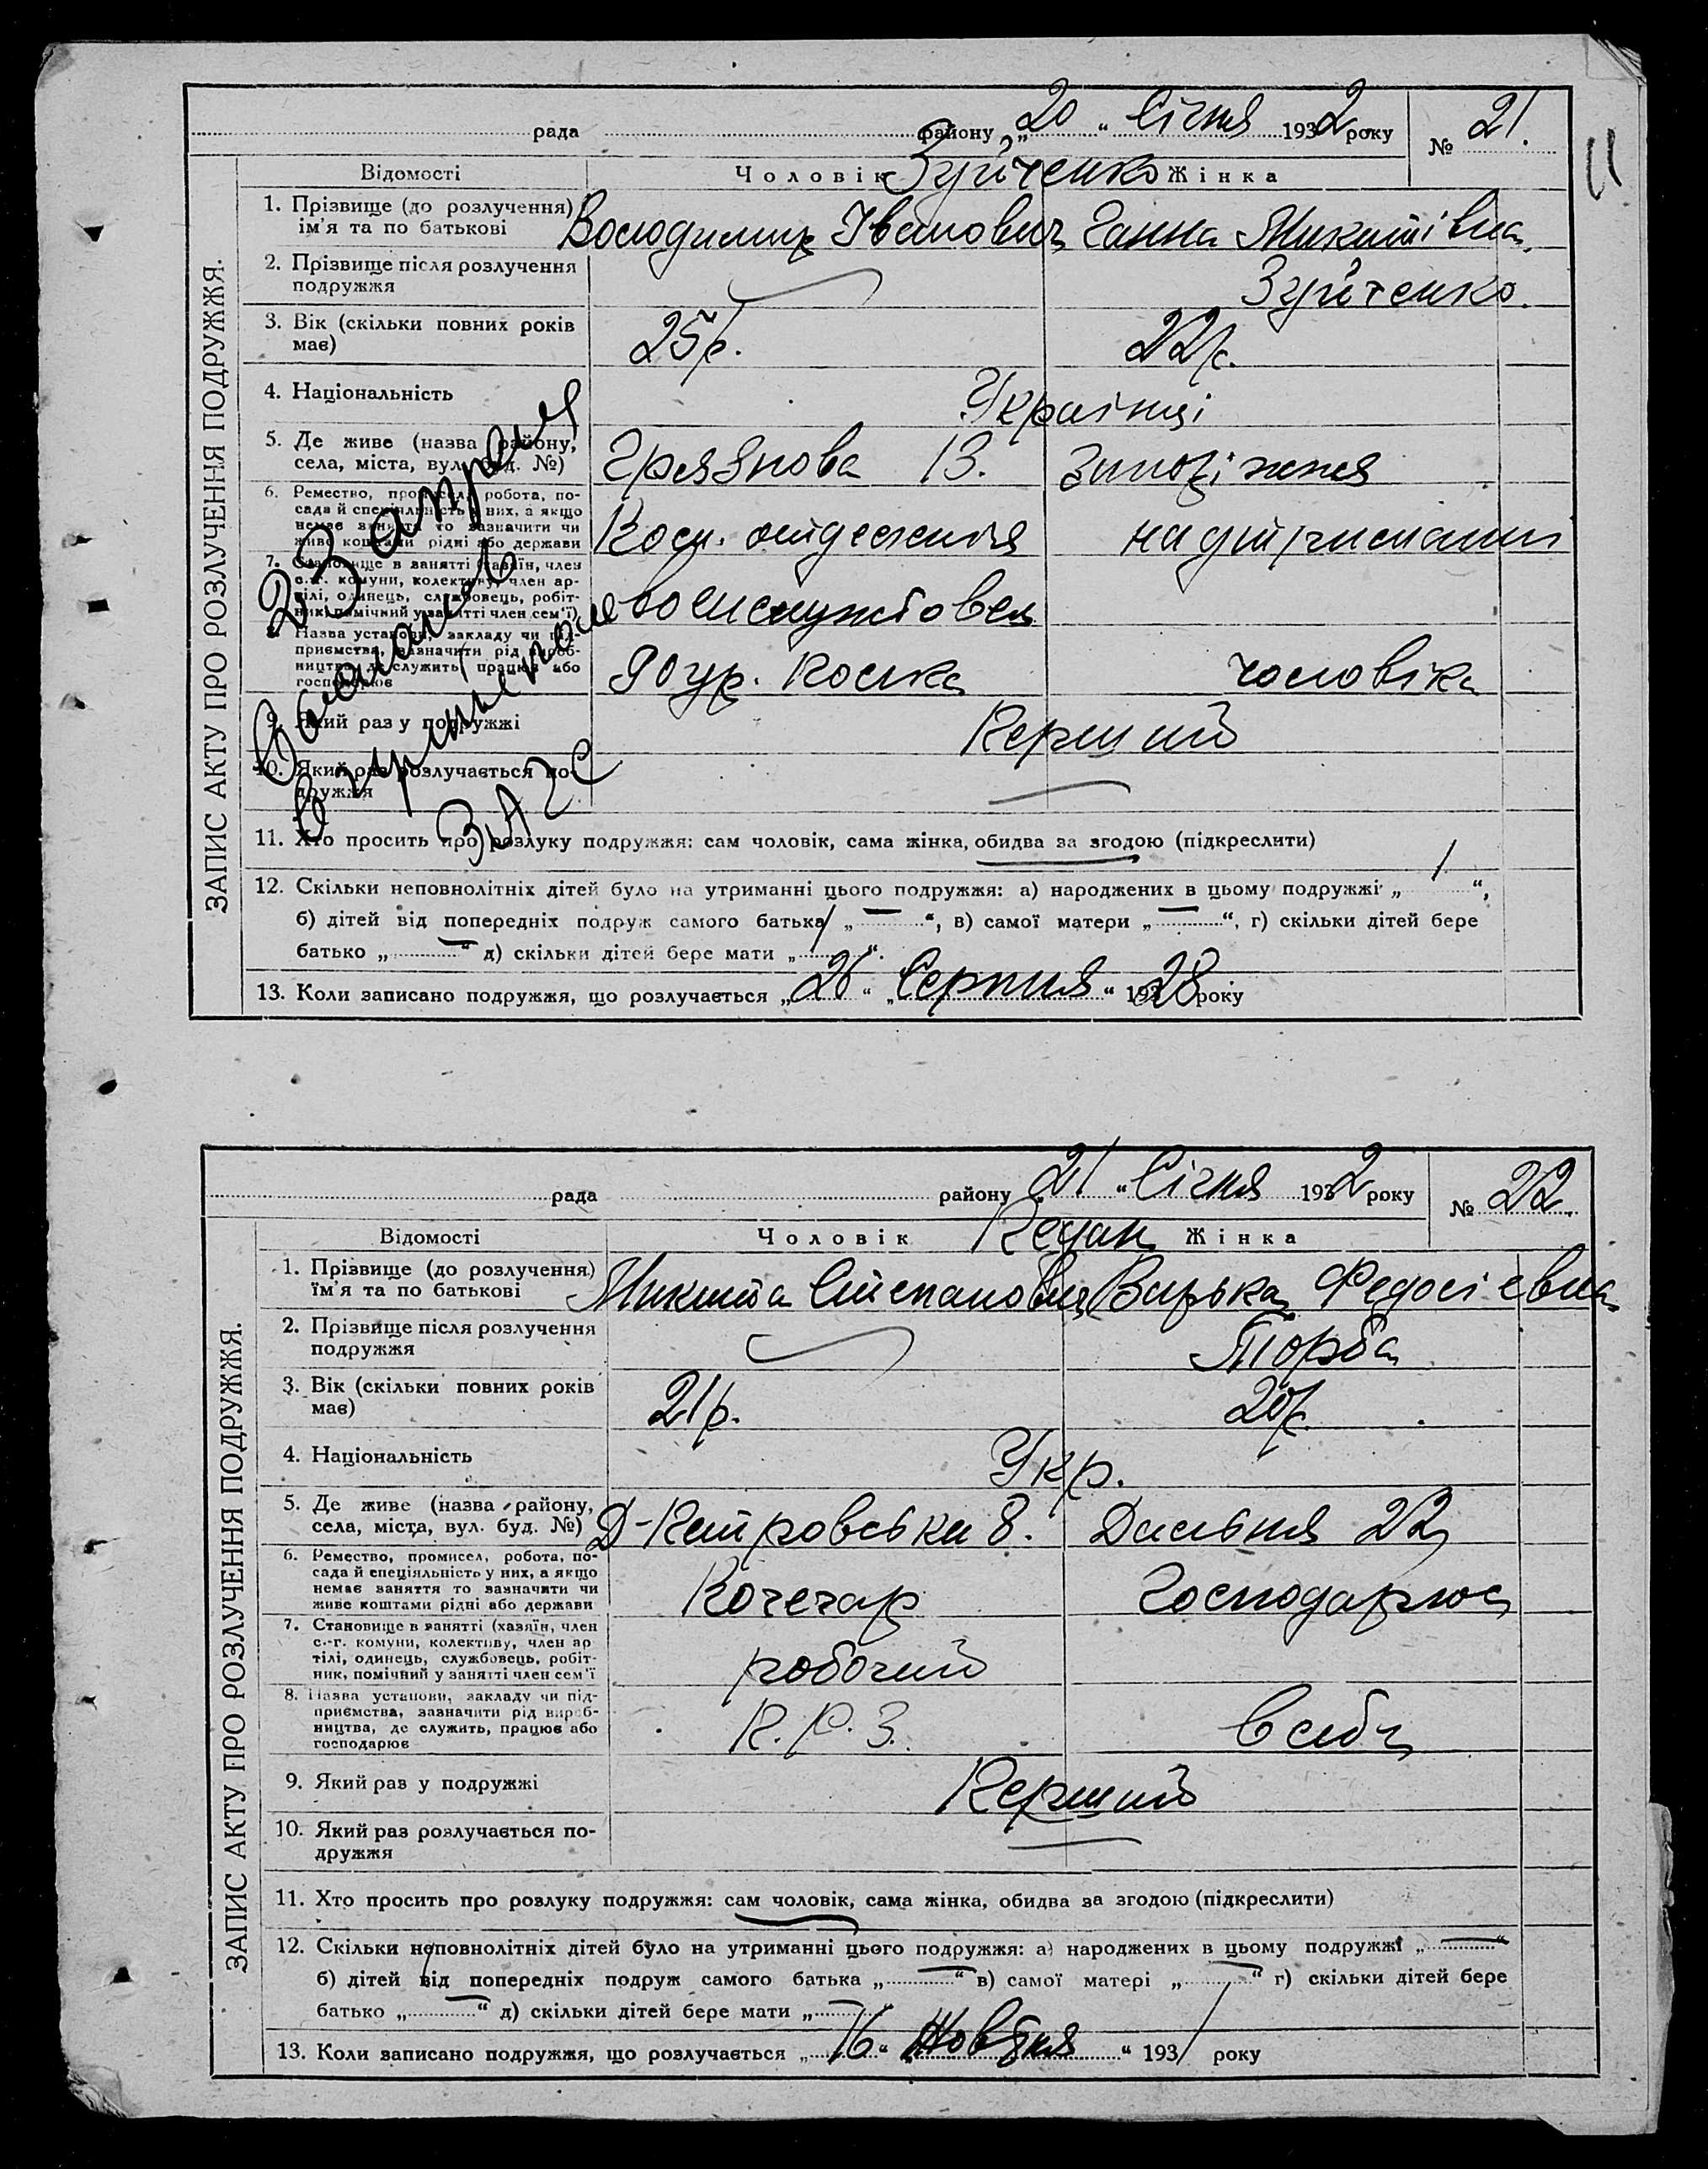 рада району „20“ Січня 1932 року № 21.
11
Відомості Чоловік Жінка
ЗАПИС АКТУ ПРО РОЗЛУЧЕННЯ ПОДРУЖЖЯ.
1. Прізвище (до розлучення)
ім'я та по батькові Володимир Іванович Ганна Микитівна
2. Прізвище після розлучення
подружжя
3. Вік (скільки повних років
має) 25 р. 22 р.
4. Національність Українці
5. Де живе (назва району,
села, міста, вул. буд. №) Грязнова 13. Запоріжжя
6. Ремество, промисел, робота, по-
сада й спеціяльність у них, а якщо
немає заняття то зазначити чи
живе коштами рідні або держави
7. Становище в занятті (хазяїн, член
с.-г. комуни, колективу, член ар-
тілі, одинець, службовець, робіт-
ник, помічний у занятті член сем'ї)
8. Назва установи, закладу чи під-
приємства, зазначити рід вироб-
ництва, де служить, працює або
господарює чоловіка
9. Який раз у подружжі Перший
10. Який раз розлучається по-
дружжя
ЗАГС
11. Хто просить про розлуку подружжя: сам чоловік, сама жінка, обидва за згодою (підкреслити)
12. Скільки неповнолітніх дітей було на утриманні цього подружжя: а) народжених в цьому подружжі „1“,
б) дітей від попередніх подруж самого батька „—“, в) самої матери „—“, г) скільки дітей бере
батько „—“ д) скільки дітей бере мати „1“.
13. Коли записано подружжя, що розлучається „26“ „Серпня“ 1928 року
рада району „21“ Січня 1932 року № 22.
Відомості Чоловік Жінка
ЗАПИС АКТУ ПРО РОЗЛУЧЕННЯ ПОДРУЖЖЯ.
1. Прізвище (до розлучення)
ім'я та по батькові Микита Степанович Варька Федосієвна
2. Прізвище після розлучення
подружжя Торба
3. Вік (скільки повних років
має) 21 р. 20 р.
4. Національність Укр.
5. Де живе (назва району,
села, міста, вул. буд. №) Д-Петровська 8. Дальня 22
6. Ремество, промисел, робота, по-
сада й спеціяльність у них, а якщо
немає заняття то зазначити чи
живе коштами рідні або держави Кочегар Господарює
7. Становище в занятті (хазяїн, член
с.-г. комуни, колективу, член ар
тілі, одинець, службовець, робіт-
ник, помічний у занятті член сем'ї робочий
8. Назва установи, закладу чи під-
приємства, зазначити рід вироб-
ництва, де служить, працює або
господарює
9. Який раз у подружжі Перший
10. Який раз розлучається по-
дружжя
11. Хто просить про розлуку подружжя: сам чоловік, сама жінка, обидва за згодою (підкреслити)
12. Скільки неповнолітніх дітей було на утриманні цього подружжя: а) народжених в цьому подружжі „—“
б) дітей від попередніх подруж самого батька „—“ в) самої матері „—“ г) скільки дітей бере
батько „—“ д) скільки дітей бере мати „—“
13. Коли записано подружжя, що розлучається „16“ „Жовтня“ 1931 року